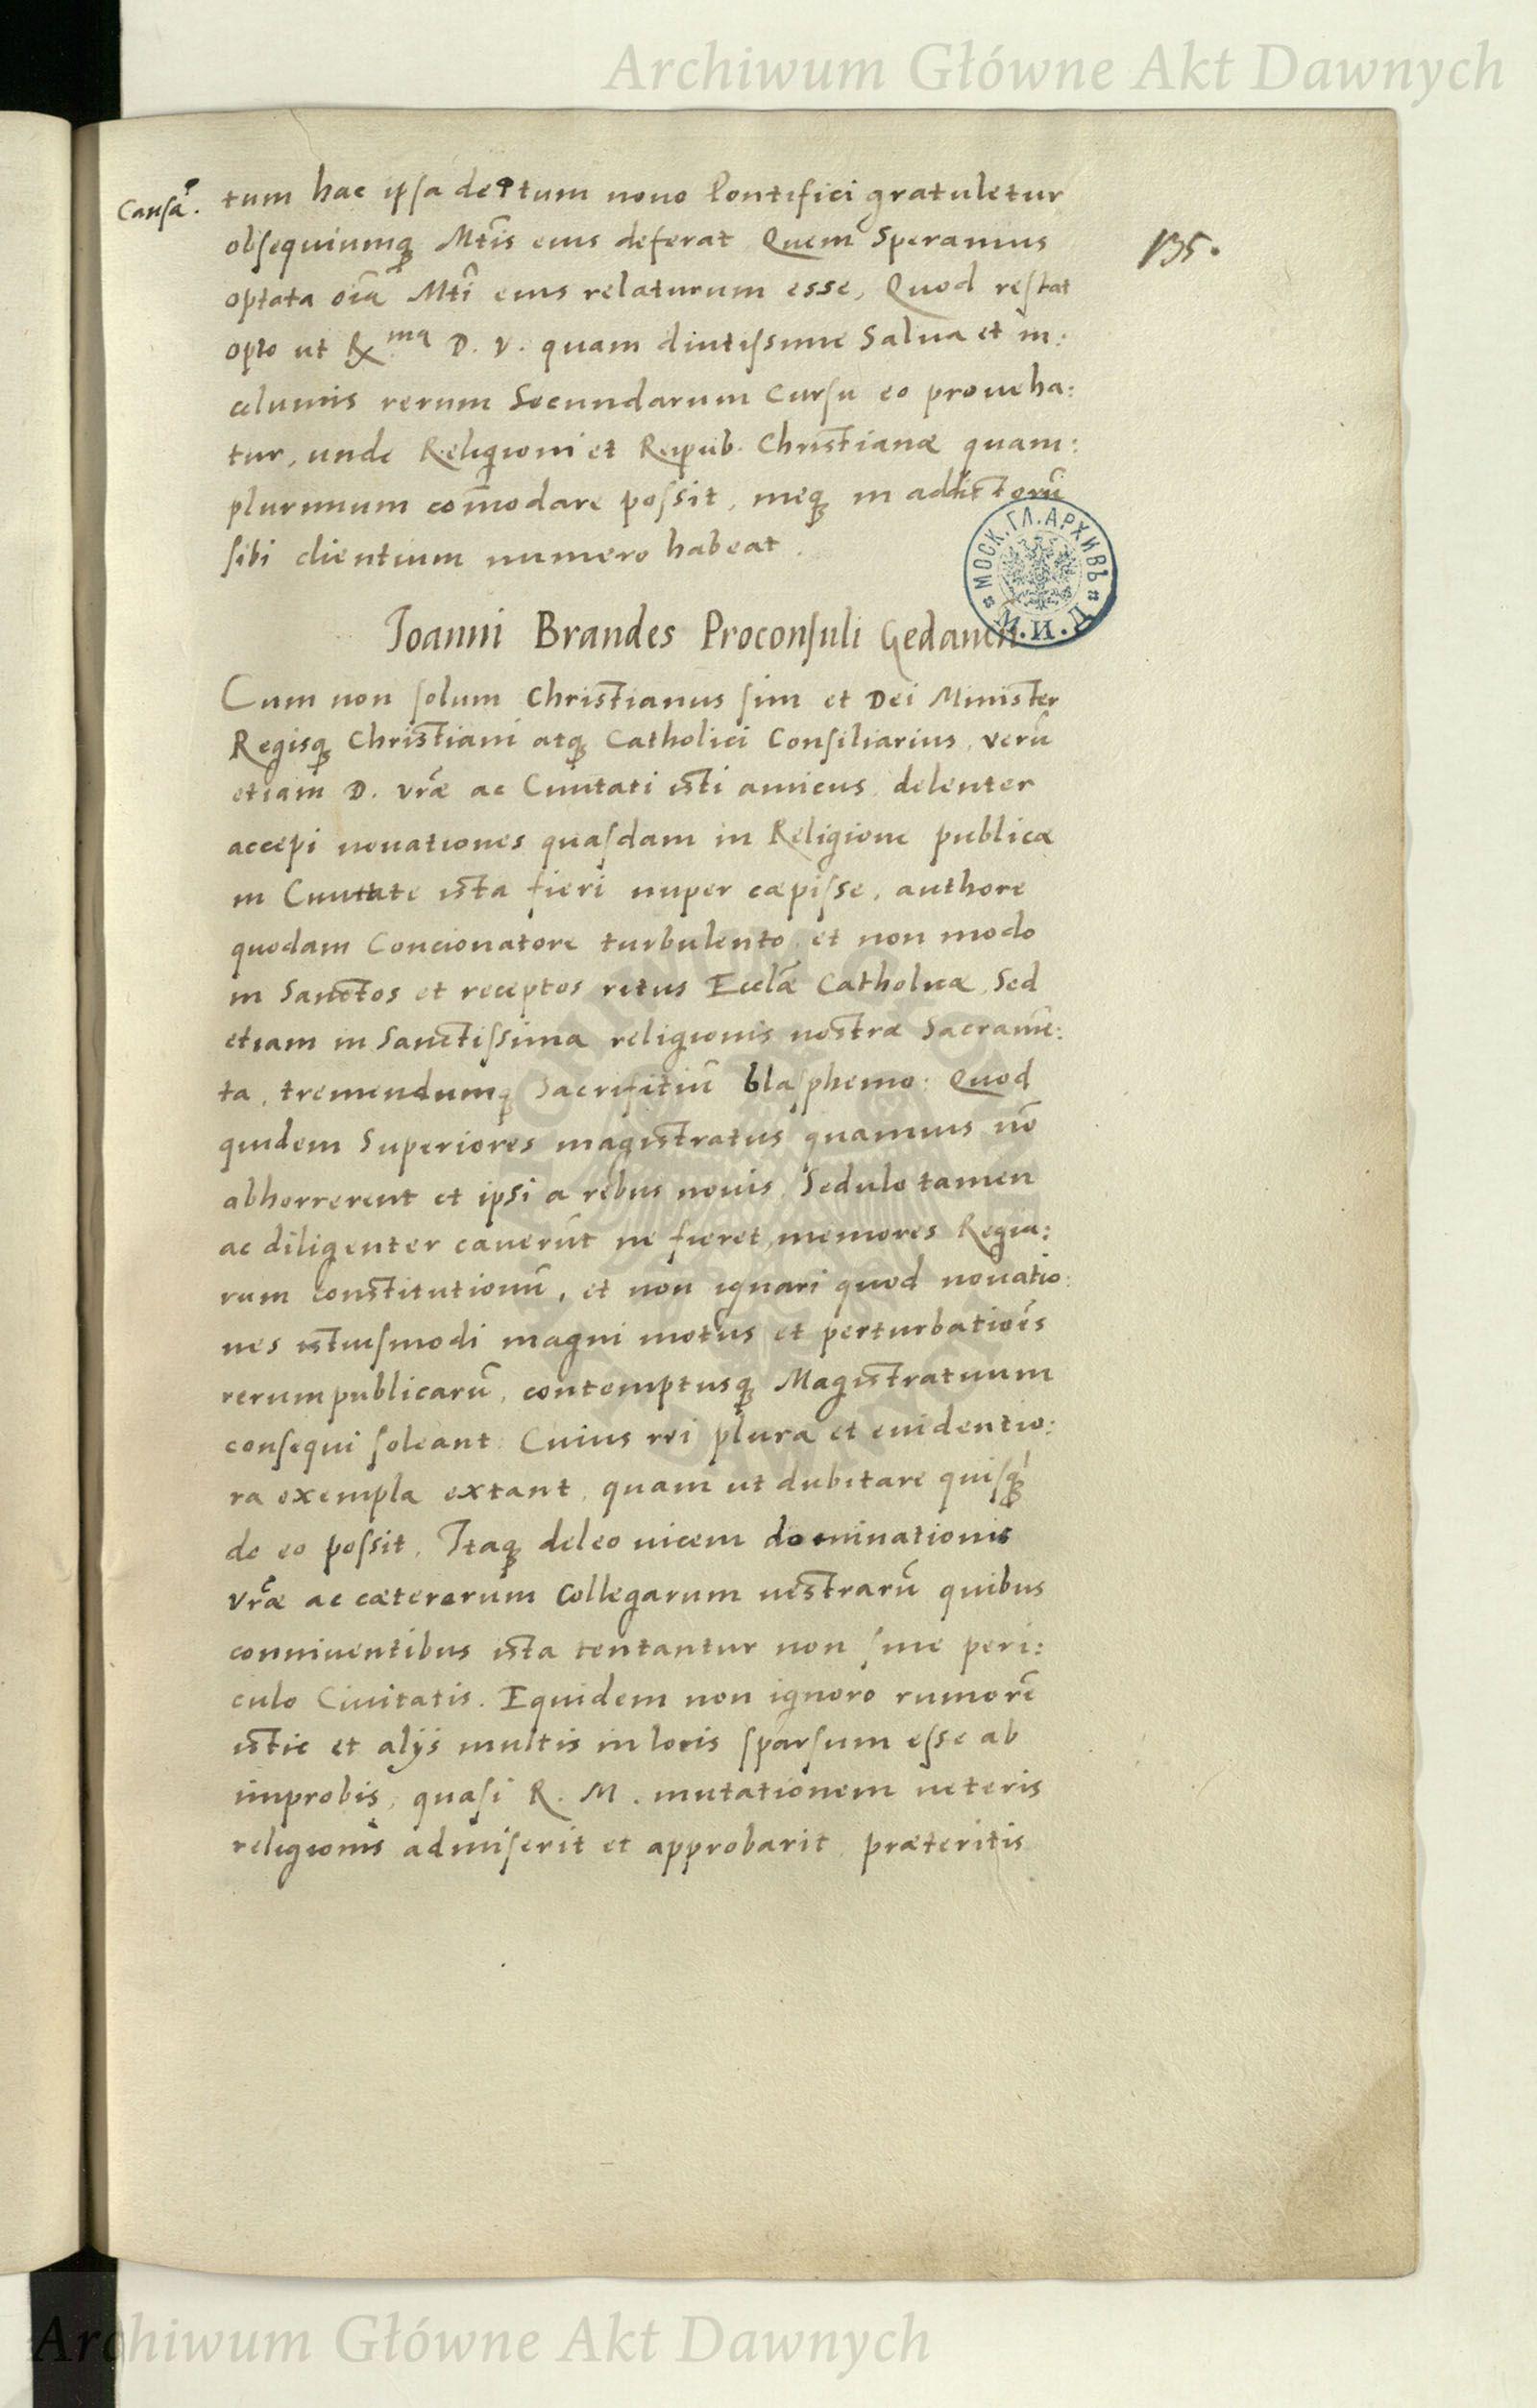 Archiwum Główne Akt Dawnych
causa.
tum hac ipsa de tum nouo Pontifici gratuletur
135.
obsequiumq Mtis eius deferat Quem Speramus
optata oīa Mti eius relaturum esse, Quod restat
opto ut Rma D. V. quam diutissime Salua et in:
columis rerum Secundarum Cursu eo proueha:
tur, unde Religioni et Reipub. Christianæ quam:
plurimum com̄odare possit, meq in addictorū
sibi clientium numero habeat.
МОСК. ГЛ. АРХИВЪ М. И. Д.
Joanni Brandes Proconsuli Gedanen
Cum non solum Christianus sim et Dei Minister
Regisq Christiani atq Catholici Consiliarius, verū
etiam D. vræ ac Ciuitati isti amicus, dolenter
accepi nouationes quasdam in Religione publicæ
in Ciuitate ista fieri nuper cæpisse, authore
quodam Concionatore turbulento, et non modo
in Sanctos et receptos ritus Ecclæ Catholicæ, Sed
etiam in Sanctissima religionis nostræ Sacramē:
ta, tremendumq Sacrifitiū blasphemo: Quod
quidem Superiores magistratus quamuis nō
abhorrerent et ipsi a rebus nouis, Sedulo tamen
ac diligenter cauerūt ne fieret, memores Regia:
rum constitutionū, et non ignari quod nouatio:
nes istiusmodi magni motus et perturbatiōes
rerumpublicarū, contemptusq Magistratuum
consequi soleant: Cuius rei plura et euidentio:
ra exempla extant, quam ut dubitare quisq
de eo possit. Itaq doleo uicem dominationis
vræ ac cæterorum Collegarum uestrarū quibus
conniuentibus ista tentantur non sine peri:
culo Ciuitatis. Equidem non ignoro rumorē
istic et alijs multis in locis sparsum esse ab
improbis, quasi R. M. mutationem ueteris
religionis admiserit et approbarit, præteritis
Archiwum Główne Akt Dawnych